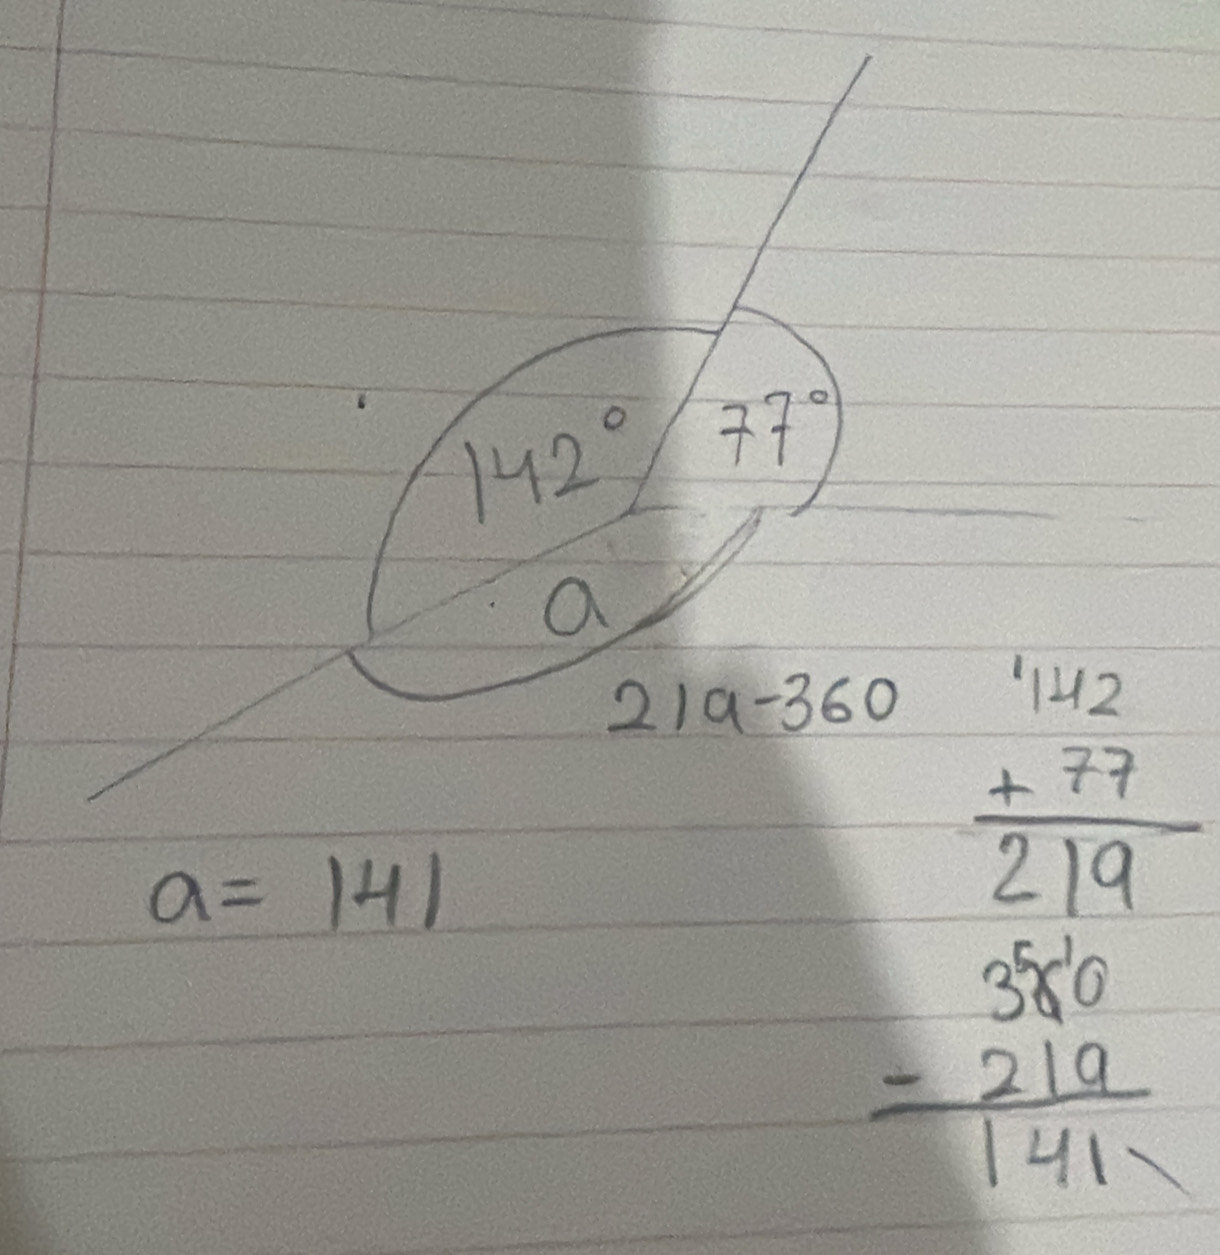 142°
77°
a
219-360
a= 141
¹142
+ 77
219
3⁵6¹0
- 219
141